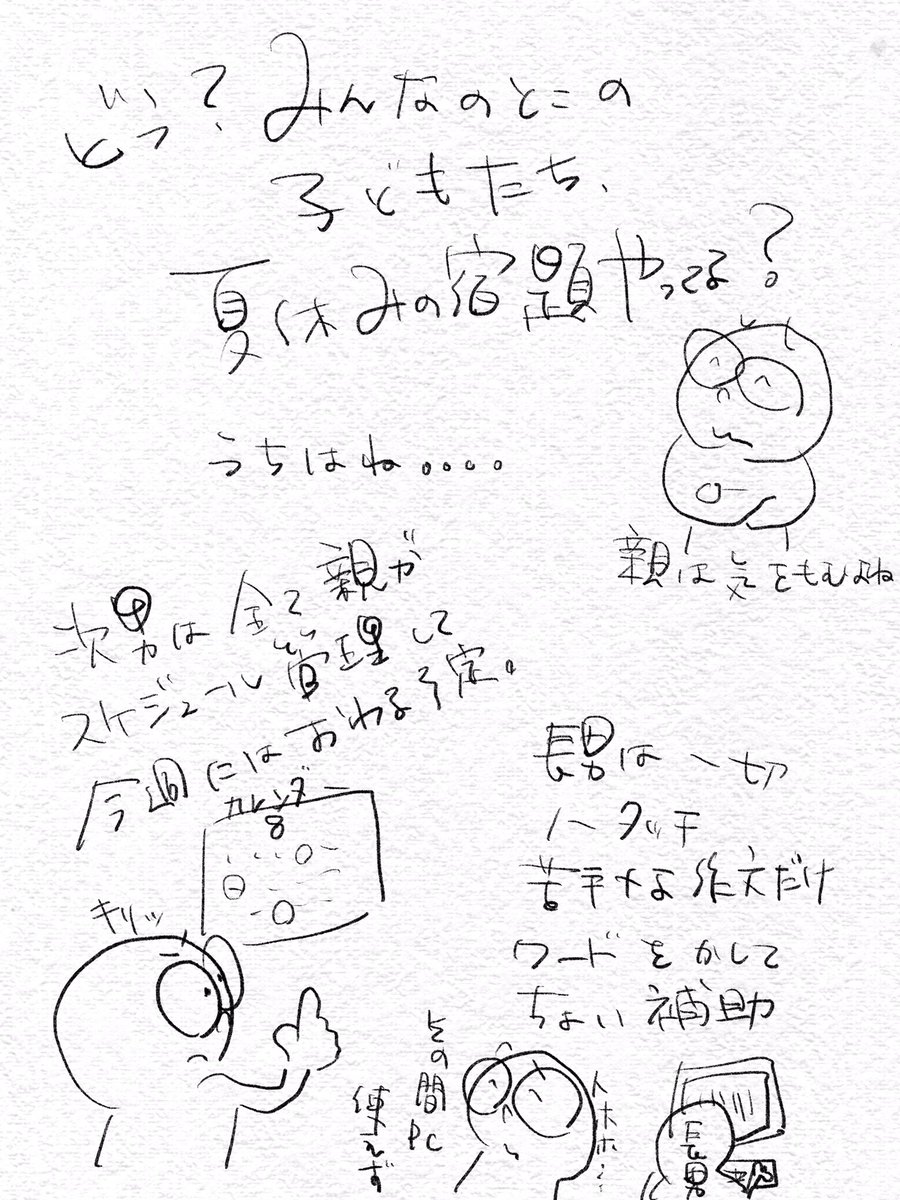 どう？みんなのとこの
子どもたち、
夏休みの宿題やってる？
うちはね....
親は気をもむよね
次男は全て親が
スケジュール管理して
今週にはおわる予定。
カレンダー
8
キリッ
長男は一切
ノータッチ
苦手な作文だけ
ワードをかして
ちょい補助
その間PC
使えず
長男